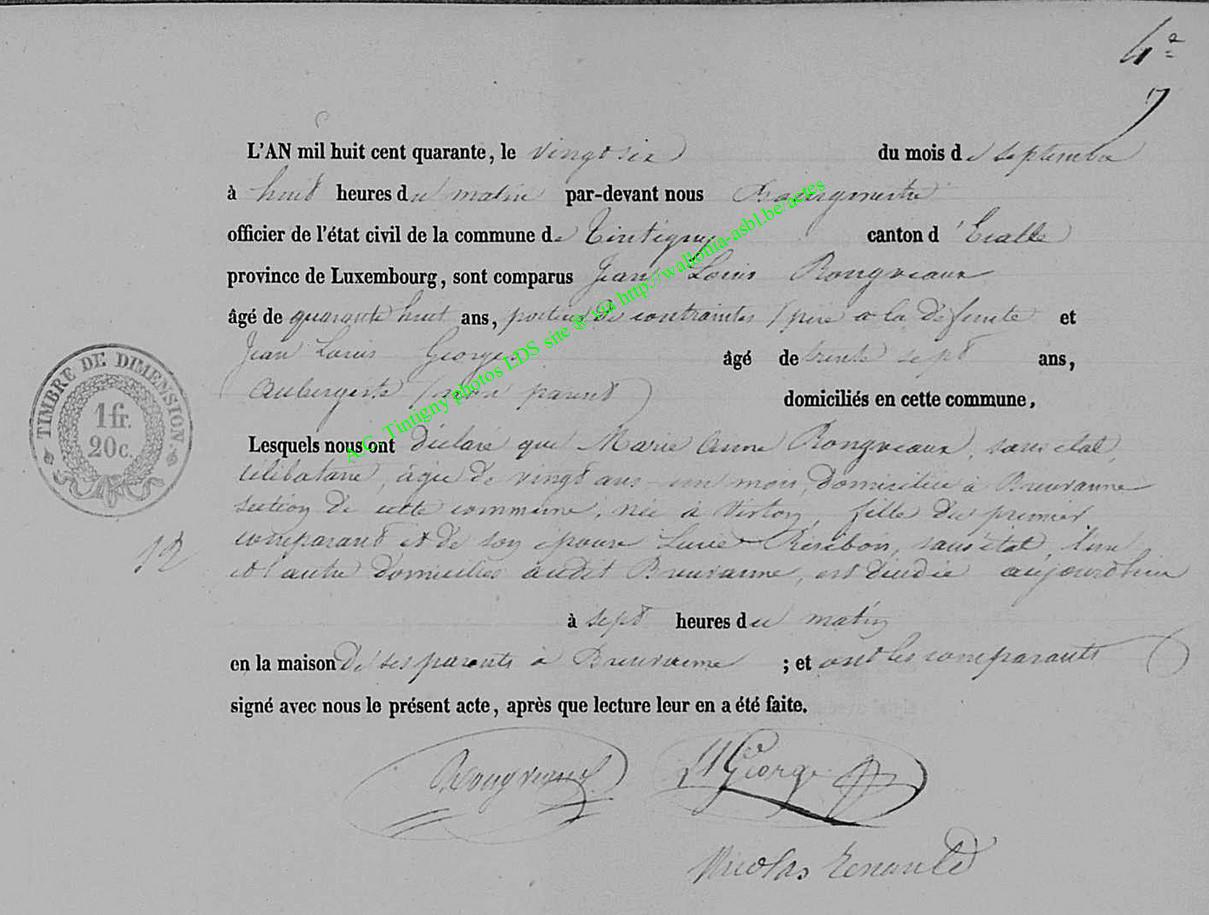 4e
7
L'AN mil huit cent quarante, le vingt six du mois de septembre
à huit heures du matin par-devant nous Bourgmestre
officier de l'état civil de la commune de Tintigny canton d'Etalle
province de Luxembourg, sont comparus Jean Louis Rongveaux
âgé de quarante huit ans, porteur de contraintes (père a la défunte et
Jean Louis George âgé de trente sept ans,
aubergiste parent) domiciliés en cette commune,
Lesquels nous ont déclaré que Marie Anne Rongveaux, sans état,
célibataire, âgée de vingt ans un mois, domiciliée à Breuvanne
section de cette commune, née à Virton, fille du premier
comparant et de son épouse Lucie, sans état, l'un
et l'autre domiciliés audit Breuvanne, est décédée aujourd'hui
à sept heures du matin
en la maison de ses parents à Breuvanne ; et ont les comparants
signé avec nous le présent acte, après que lecture leur en a été faite.
TIMBRE DE DIMENSION
1 fr.
20 c.
12
Rongveaux
JL George
Nicolas Renauld
A.C. Tintigny photos LDS site @ via http://wallonia-asbl.be/actes